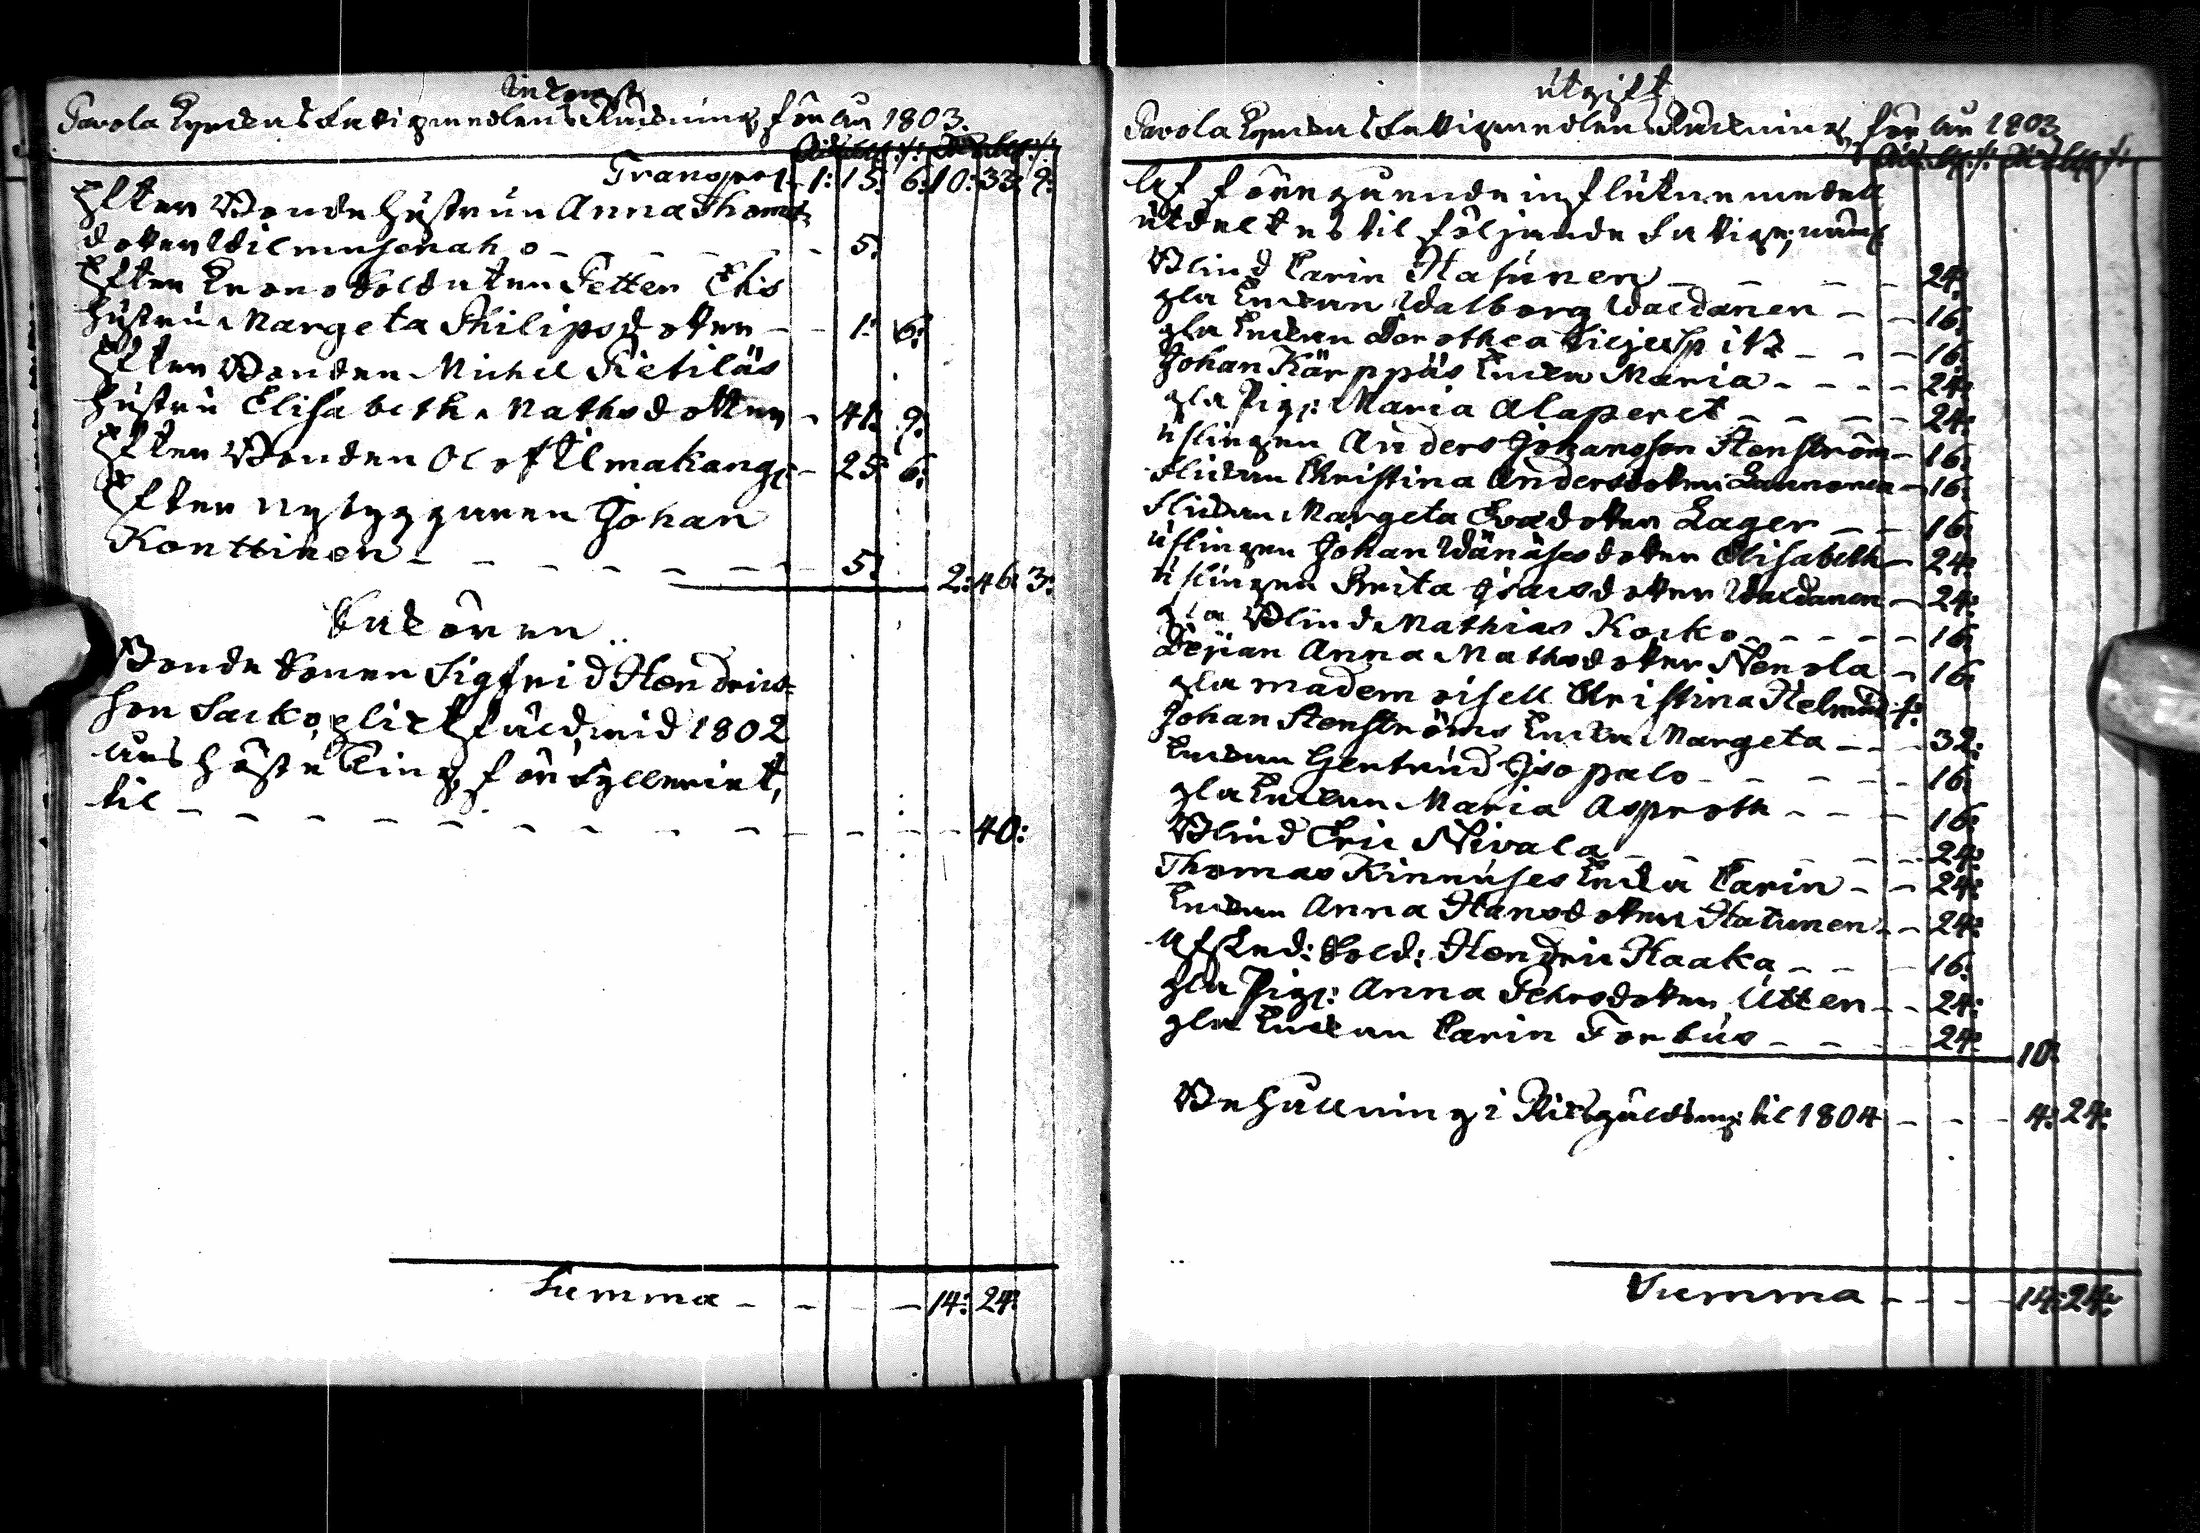 Inkomst
Pavola Kyrckas Fattigmedlens Räckning för år 1803.
Rd. sk. rs. Rd. sk. rs.
Transport 1: 15. 6: 10: 33: 9:
Efter Bonde hustrun Anna Thoms
dotter Wilmusenaho - - - 5:
Efter Krono Soldaten Petter Ekis
hustru Margeta Philipsdotter - - 1: 6:
Efter Bonden Michel Pietiläs
hustru Elisabeth Mathsdotter - 41: 9:
Efter Bonden Olof Ilmakangs - 25: 6:
Efter nybyggaren Johan
Konttinen - - - - - - 5: 2: 46: 3:
Sakören
Bonde Sonen Sigfrid Hendrics-
son Sarko, plicktfäld wid 1802
års höste Ting, för Fylleriet,
til - - - - - - - - - - 40:
Summa - - - - 14: 24:
Utgift
Pavola Kyrckas Fattigmedlens Räckning, för år 1803
Rd. sk. rs. Rd. sk. rs.
Af föregående influtne medell
utdeltes til följande Fattige, näml
Blind Carin Hasunen - - - - 24:
gla Enckan Walborg Waldanen - - 16:
gla Enckan Dorothea Liljespitz - - - 16:
Johan Kärppäs Encka Maria - - - - 24:
gla Pig: Maria Alaperet - - - 24:
Uslingen Anders Johansson Stenström - 16:
Flickan Christina Andersdotter - 16:
Flickan Margeta Evasdotter Lager - - 16:
Uslingen Johan Wänäses dotter Elisabeth - 24:
Uslingen Brita Isacsdotter Waldanen - 24:
gla Blind Mathias Korko - - - - - 16:
Pejian Anna Mathsdotter Nenola - 16:
gla mademoisell Christina
Johan Stenströms Encka Margeta - - - 32:
Enckan Gertrud Isopalo - - - - - 16:
gla Enckan Maria Asproth - - - 16:
Blind Eric Nivala - - - - - 24:
Thomas Kinnuses Encka Carin - - 24:
Enckan Anna Hansdotter Hatunen - - 24:
Afsked: Sold: Hendric Haaka - - - 16:
gla Pig: Anna Pehrsdotter Utten - - 24:
gla Enckan Carin Forbus - - - - 24: 10:
Behållning i Riksgälds: til 1804 - - - 4: 24:
Summa - - - - 14: 24: